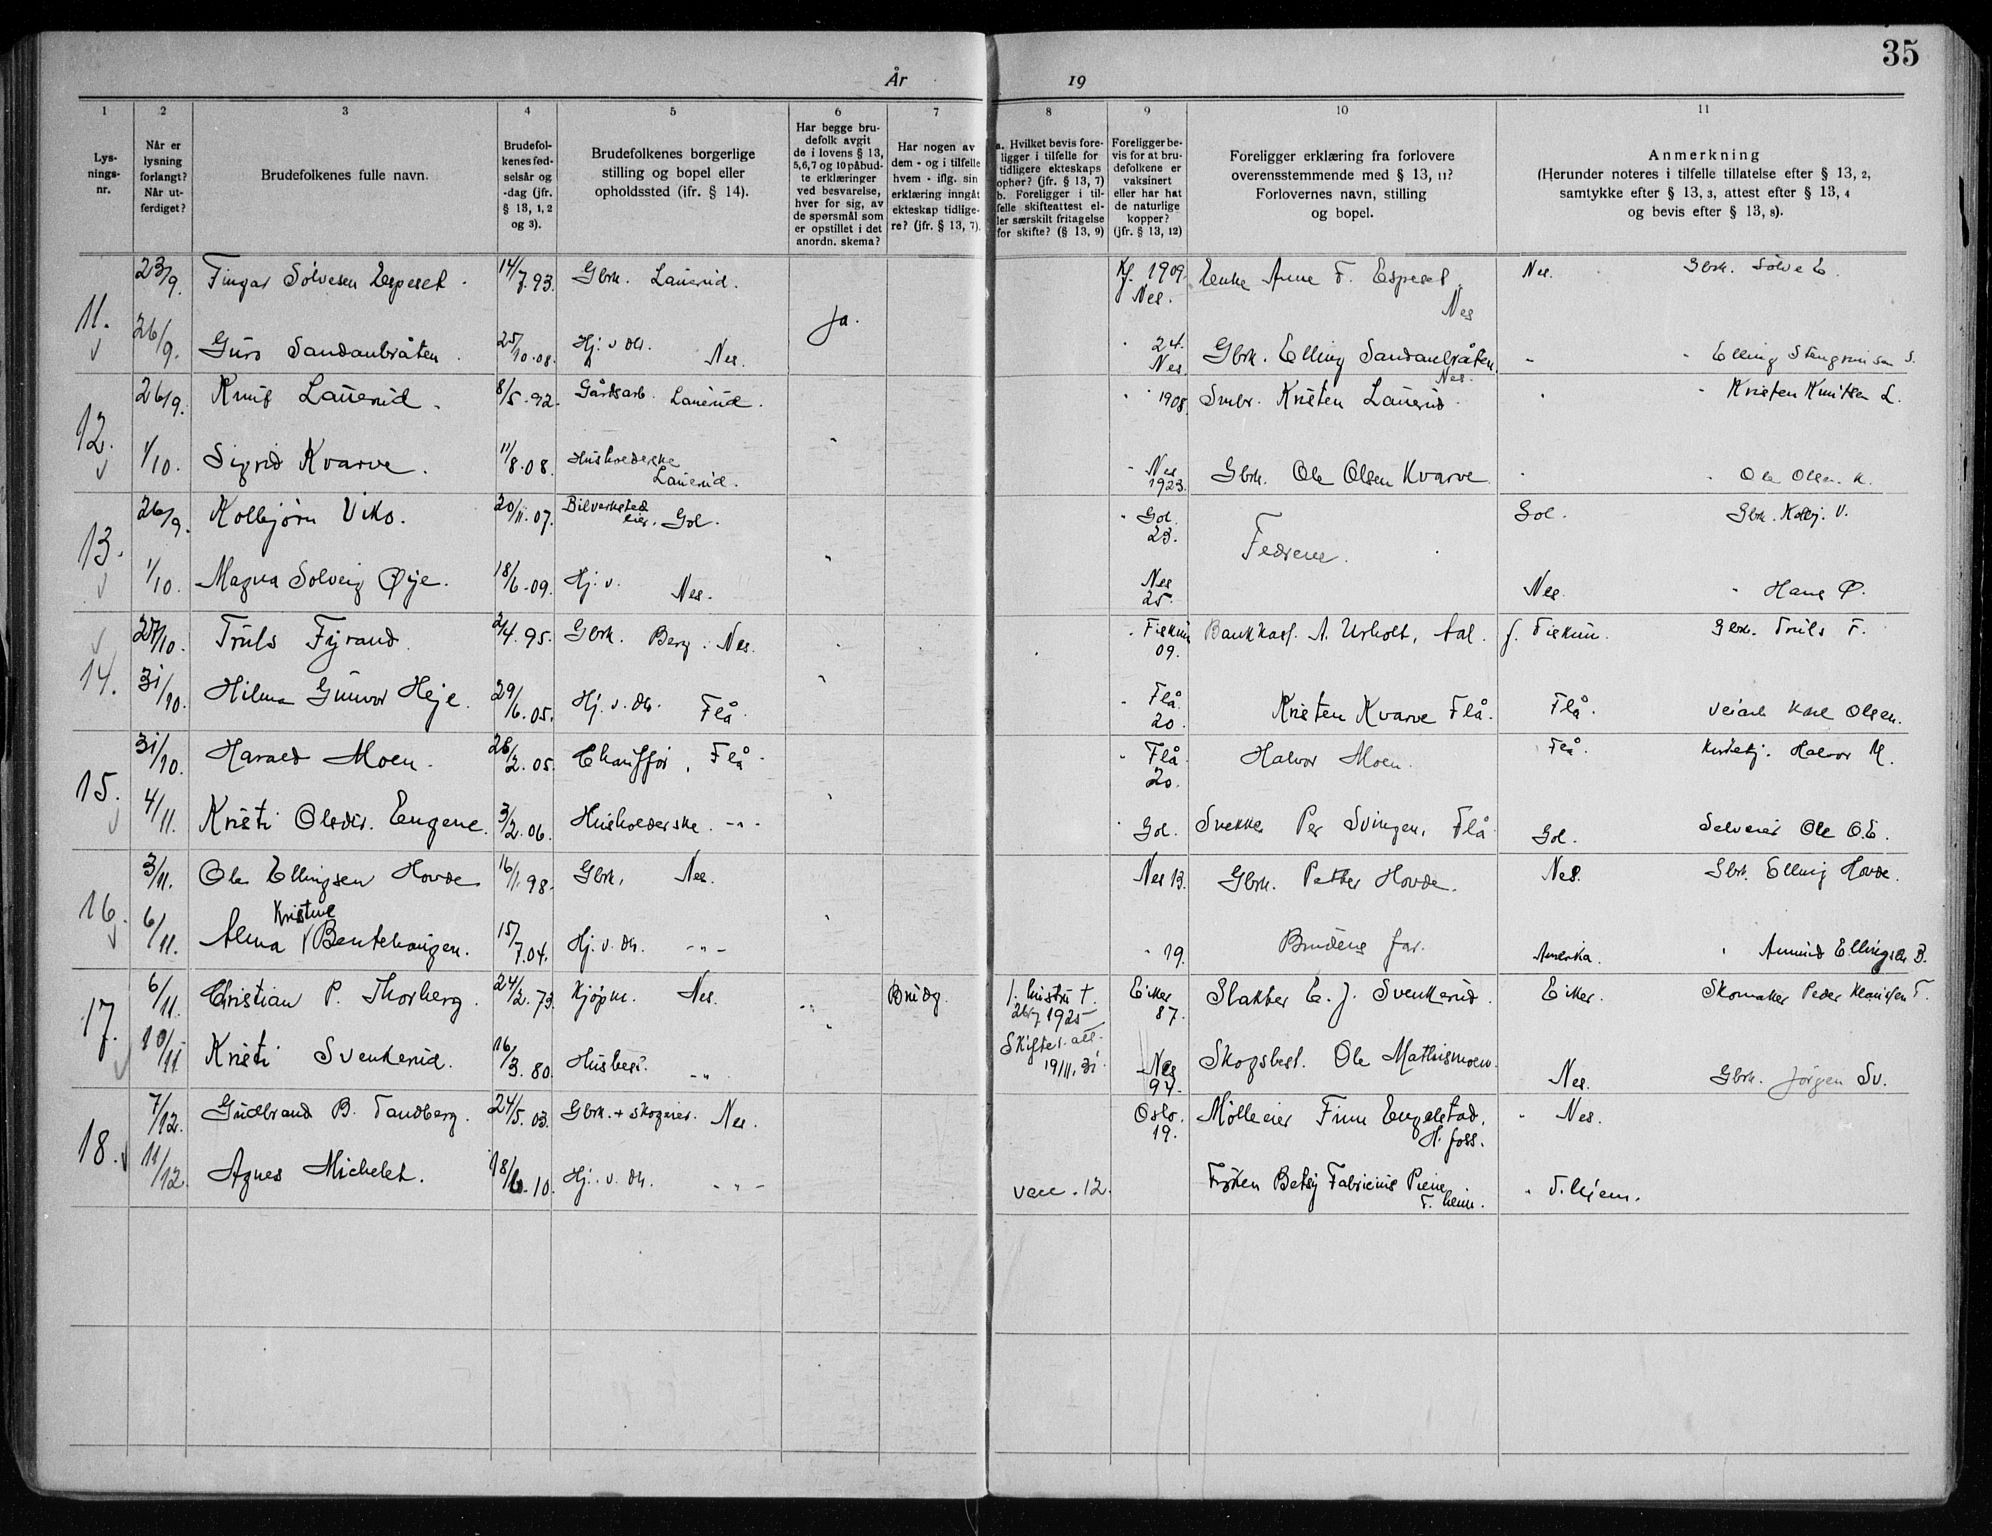 35
År 19
1 2 3 4 5 6 7 8 9 10 11
Lys-
nings-
nr.
Når er
lysning
forlangt?
Når ut-
ferdiget?
Brudefolkenes fulle navn.
Brudefol-
kenes fød-
selsår og
-dag (jfr.
§ 13, 1, 2
og 3).
Brudefolkenes borgerlige
stilling og bopel eller
opholdssted (jfr. § 14).
Har begge bru-
defolk avgit
de i lovens § 13,
5, 6, 7 og 10 påbud-
te erklæringer
ved besvarelse,
hver for sig, av
de spørsmål som
er opstillet i det
anordn. skema?
Har nogen av
dem - og i tilfelle
hvem - iflg. sin
erklæring inngått
ekteskap tidlige-
re? (jfr. § 13, 7).
a. Hvilket bevis fore-
ligger i tilfelle for
tidligere ekteskaps
ophør? (jfr. § 13, 7)
b. Foreligger i til-
felle skifteattest el-
ler særskilt fritagelse
for skifte? (§ 13, 9)
Foreligger be-
vis for at bru-
defolkene er
vaksinert
eller har hat
de naturlige
kopper?
(jfr. § 13, 12)
Foreligger erklæring fra forlovere
overensstemmende med § 13, 11?
Forlovernes navn, stilling
og bopel.
Anmerkning
(Herunder noteres i tilfelle tillatelse efter § 13, 2,
samtykke efter § 13, 3, attest efter § 13, 4
og bevis efter § 13, 8).
11. 23/9. Fingar Sølvesen Espeset. 14/7.93. Gbrk. Lauerud. Ja. Kf. 1909. Nes. Enke Anne F. Espeset. Nes Nes. Gbrk. Sølve E.
26/9. Guro Sandanbråten. 25/10.08. Hj. v. do. Nes. " 24. Nes Gbrk. Elling Sandanbråten. Nes. " " Elling S.
12. 26/9. Knut Lauerud. 8/5.92. Gårdsarb. Lauerud. " 1908. Smbr. Kristen Lauerud. " " Kristen Knutsen L.
1/10. Sigrid Kvarve. 11/8.08. Husholderske Lauerud. " Nes 1923. Gbrk. Ole Olsen Kvarve. " " Ole Olsen K.
13. 26/9. Kolbjørn Viko. 20/11.07. Bilverksted eier, Gol. " Gol. 23. Fedrene. Gol. Gbr. Kolbj. V.
1/10. Magna Solveig Øye. 18/6.09. Hj. v. Nes. Nes 25. Nes. " Hans Ø.
14. 27/10. Truls Fyrand. 2/4.95. Gbrk. Berg. Nes. " Fiskum 09. Bankkass. A. Urholt, Aal. f. Fiskum. Gbr. Truls F.
31/10. Hilma Gunvor Heje. 29/6.05. Hj. v. do. Flå. " Flå. 20. Kristen Kvarve Flå. Flå. Veiarb Karl Olsen.
15. 31/10. Harald Moen. 26/2.05. Chauffør, Flå. " Flå. 20. Halvor Moen. Flå Halvor M.
4/11. Kristi Olsdtr. Eugene. 3/2.06. Husholderske. -"- " Gol. Snekker Per Svingen, Flå. Gol. Selveier Ole O.E.
16. 3/11. Ole Ellingsen Hovde 16/1.98. Gbrk. Nes. Nes 13. Gbrk. Petter Hovde. Nes. Gbrk. Elling Hovde.
6/11. Alma Kristine Bentehaugen. 15/7.04. Hj. v. do. -"- " 19. Brudens far. Amerika. " Amund Ellingsen B.
17. 6/11. Christian P. Thorberg. 24/2.73. Kjøpm. Nes. Brudg. 1. hustru †. 1925 Skifteatt. 19/11.31 Eiker 87. Slakter E. J. Svenkerud. Eiker. Skomaker Peder Klausen T.
10/11 Kristi Svenkerud. 16/3.80. Husbest. -"- Nes 94. Skogsbest. Ole Mathismoen. Nes. Gbrk. Jørgen Sv.
18. 7/12. Gudbrand B. Tandberg. 24/5.03. Gbrk. + skogeier. Nes. Oslo. 19. Mølleeier Finn Engelstad. H. foss. " Nes.
11/12. Agnes Michelet. 18/6.10. Hj. v. do. -"- vacc. 12. Frøken Betsy Fabricius Piene T. heim. " T. hjem.